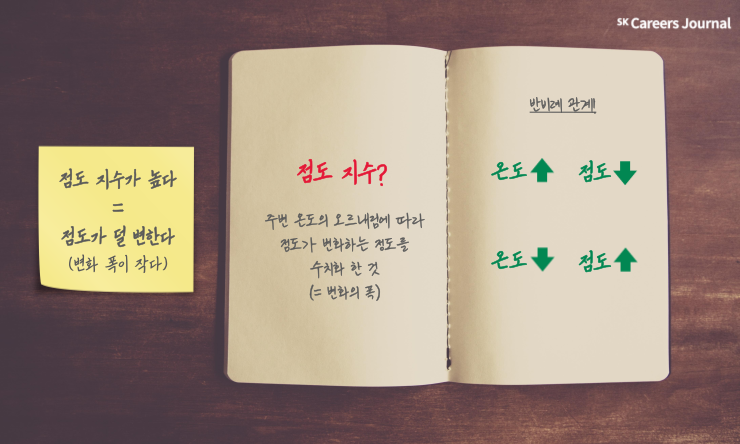 SK Careers Journal
점도 지수가 높다
=
점도가 덜 변한다
(변화 폭이 작다)
점도 지수?
주변 온도의 오르내림에 따라
점도가 변화하는 정도를
수치화 한 것
(= 변화의 폭)
반비례 관계!
온도 점도
온도 점도